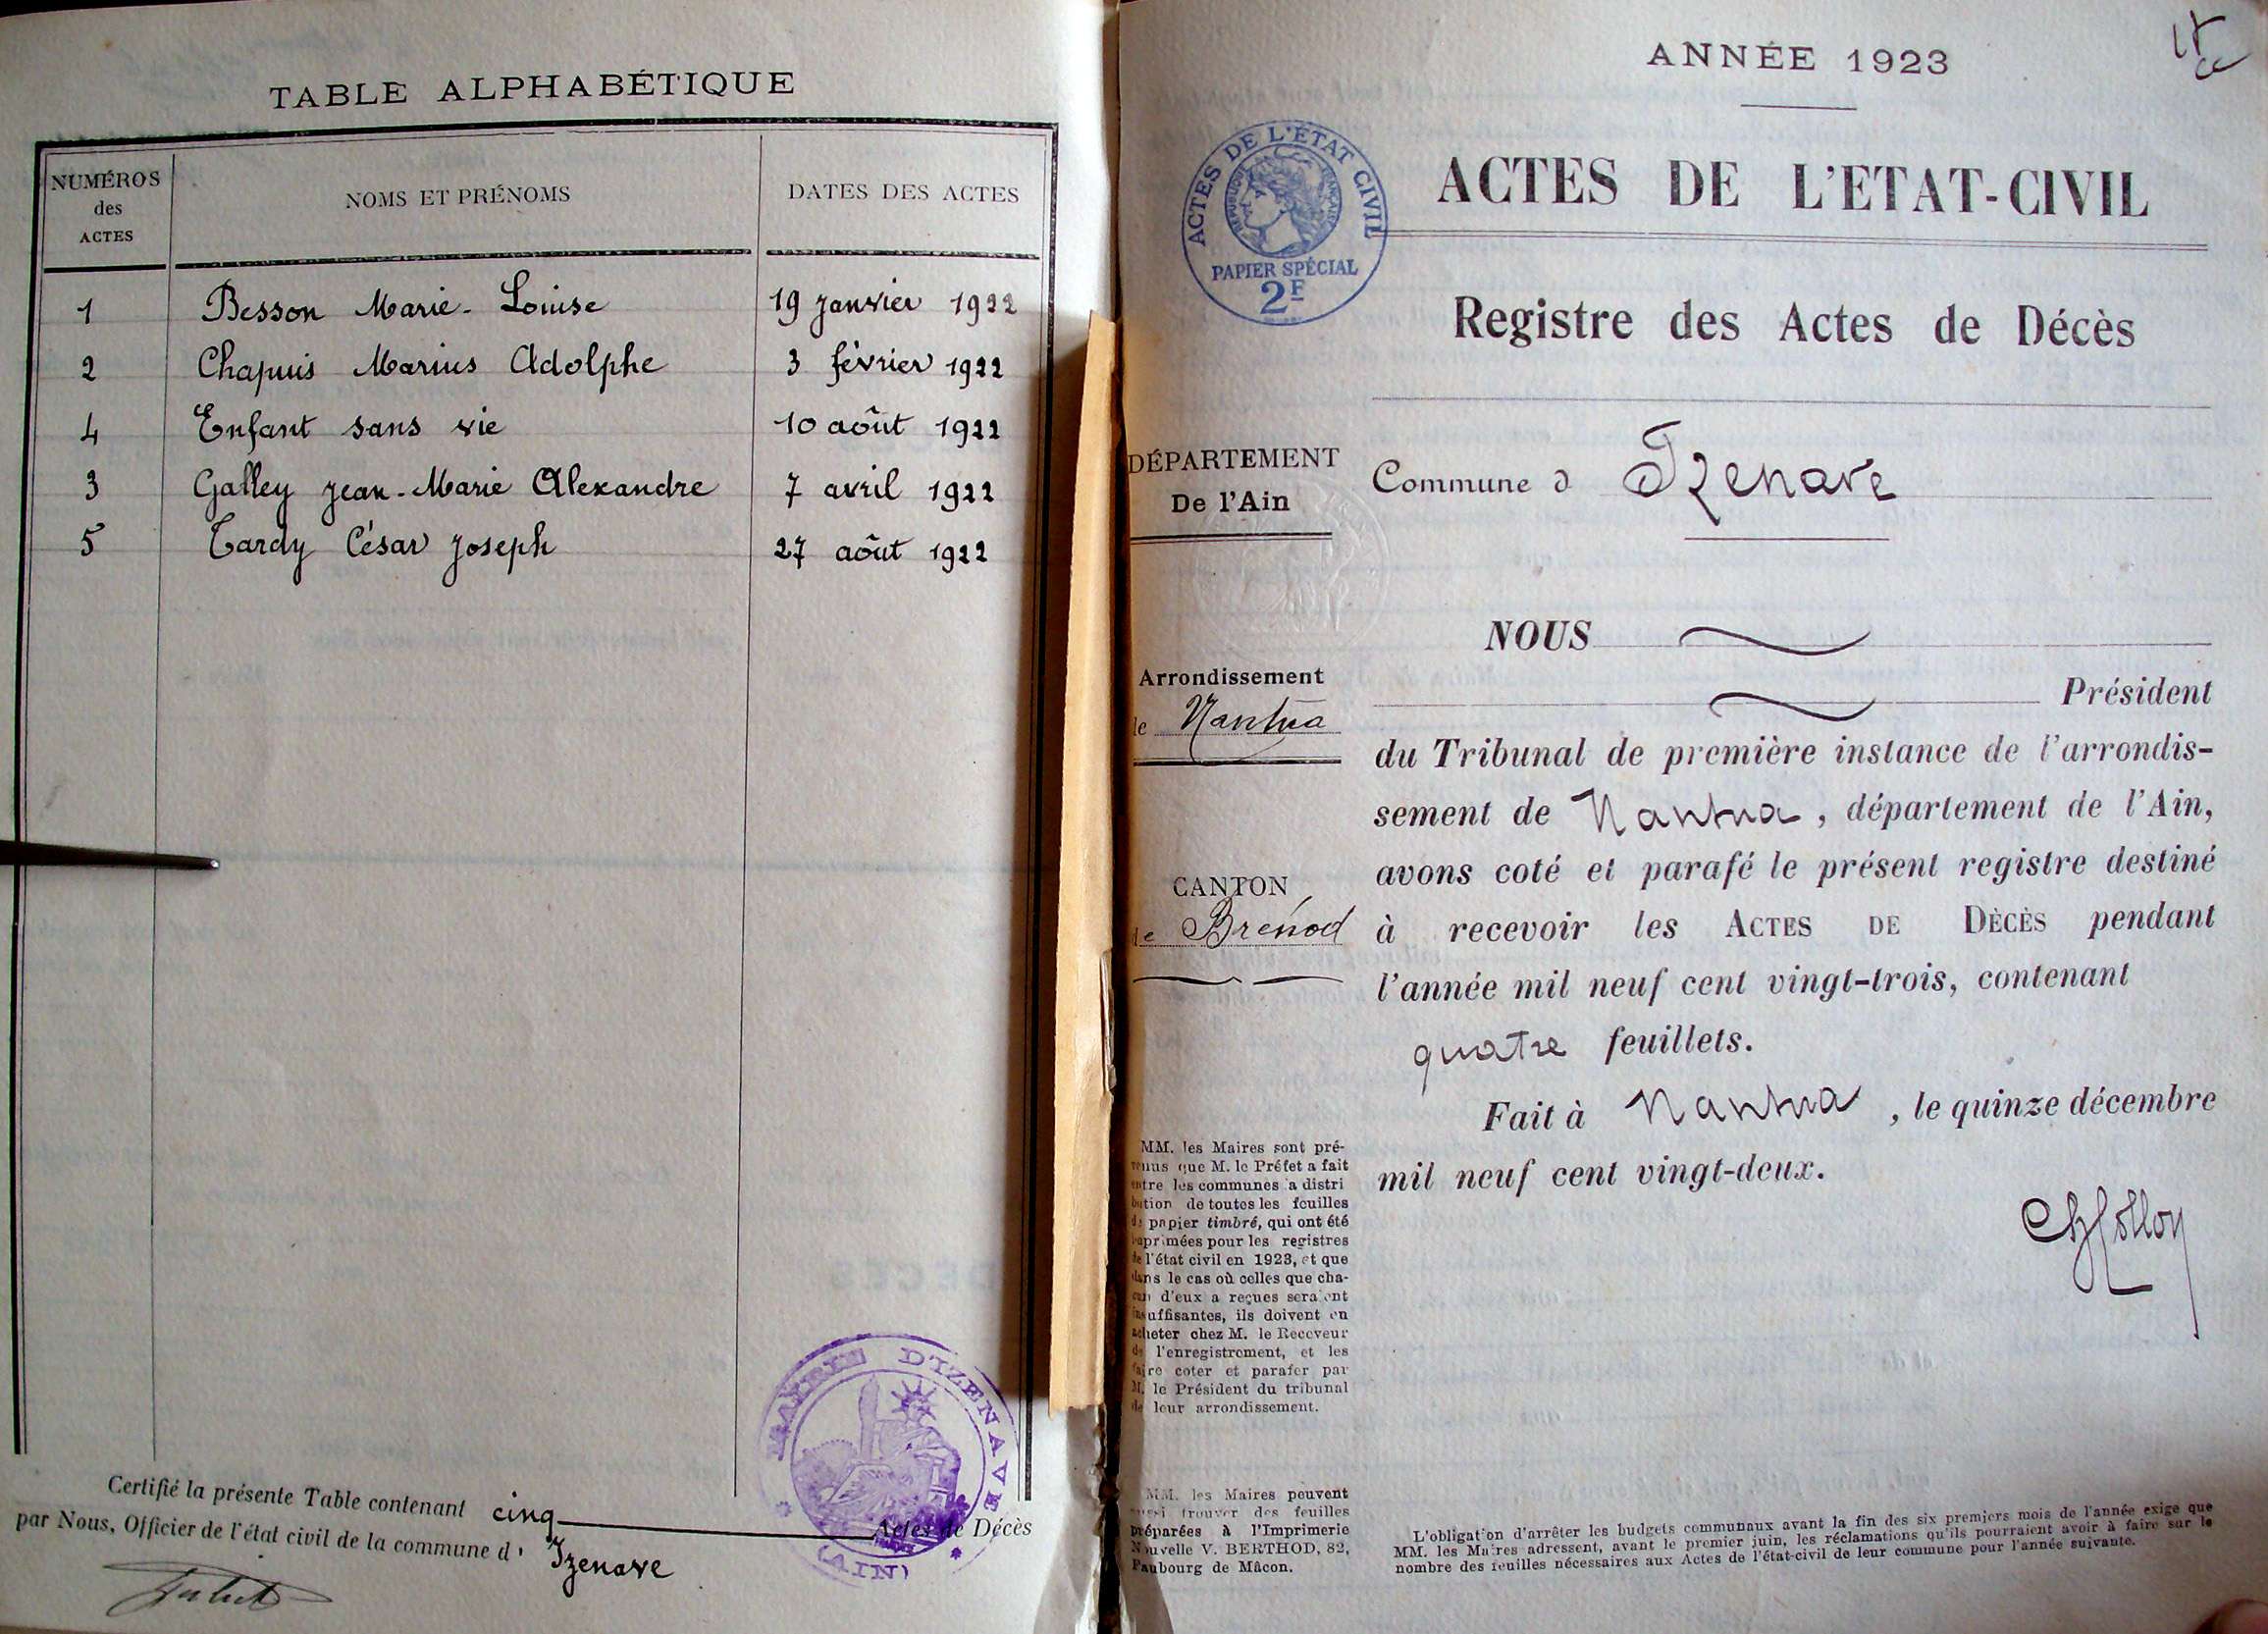 TABLE ALPHABÉTIQUE
NUMÉROS
des
ACTES
NOMS ET PRÉNOMS
DATES DES ACTES
1 Besson Marie-Louise 19 janvier 1922
2 Chapuis Marius Adolphe 3 février 1922
4 Enfant sans vie 10 août 1922
3 Galley Jean-Marie Alexandre 7 avril 1922
5 Tardy César Joseph 27 août 1922
Certifié la présente Table contenant cinq Actes de Décès
par Nous, Officier de l'état civil de la commune d' Izenave
MAIRIE D'IZENAVE
(AIN)
ANNÉE 1923
ACTES DE L'ÉTAT CIVIL
RÉPUBLIQUE FRANÇAISE
PAPIER SPÉCIAL
2F
ACTES DE L'ETAT-CIVIL
Registre des Actes de Décès
DÉPARTEMENT
De l'Ain
Commune d Izenave
Arrondissement
de Nantua
CANTON
de Brénod
NOUS
Président
du Tribunal de première instance de l'arrondis-
sement de Nantua, département de l'Ain,
avons coté et parafé le présent registre destiné
à recevoir les ACTES DE DÉCÈS pendant
l'année mil neuf cent vingt-trois, contenant
quatre feuillets.
Fait à Nantua, le quinze décembre
mil neuf cent vingt-deux.
MM. les Maires sont pré-
venus que M. le Préfet a fait
entre les communes la distri
bution de toutes les feuilles
de papier timbré, qui ont été
imprimées pour les registres
de l'état civil en 1923, et que
dans le cas où celles que cha-
cun d'eux a reçues seraient
insuffisantes, ils doivent en
acheter chez M. le Receveur
de l'enregistrement, et les
faire coter et parafer par
M. le Président du tribunal
de leur arrondissement.
MM. les Maires peuvent
aussi trouver des feuilles
préparées à l'Imprimerie
Nouvelle V. BERTHOD, 82,
Faubourg de Mâcon.
L'obligation d'arrêter les budgets communaux avant la fin des six premiers mois de l'année exige que
MM. les Maires adressent, avant le premier juin, les réclamations qu'ils pourraient avoir à faire sur le
nombre des feuilles nécessaires aux Actes de l'état-civil de leur commune pour l'année suivante.